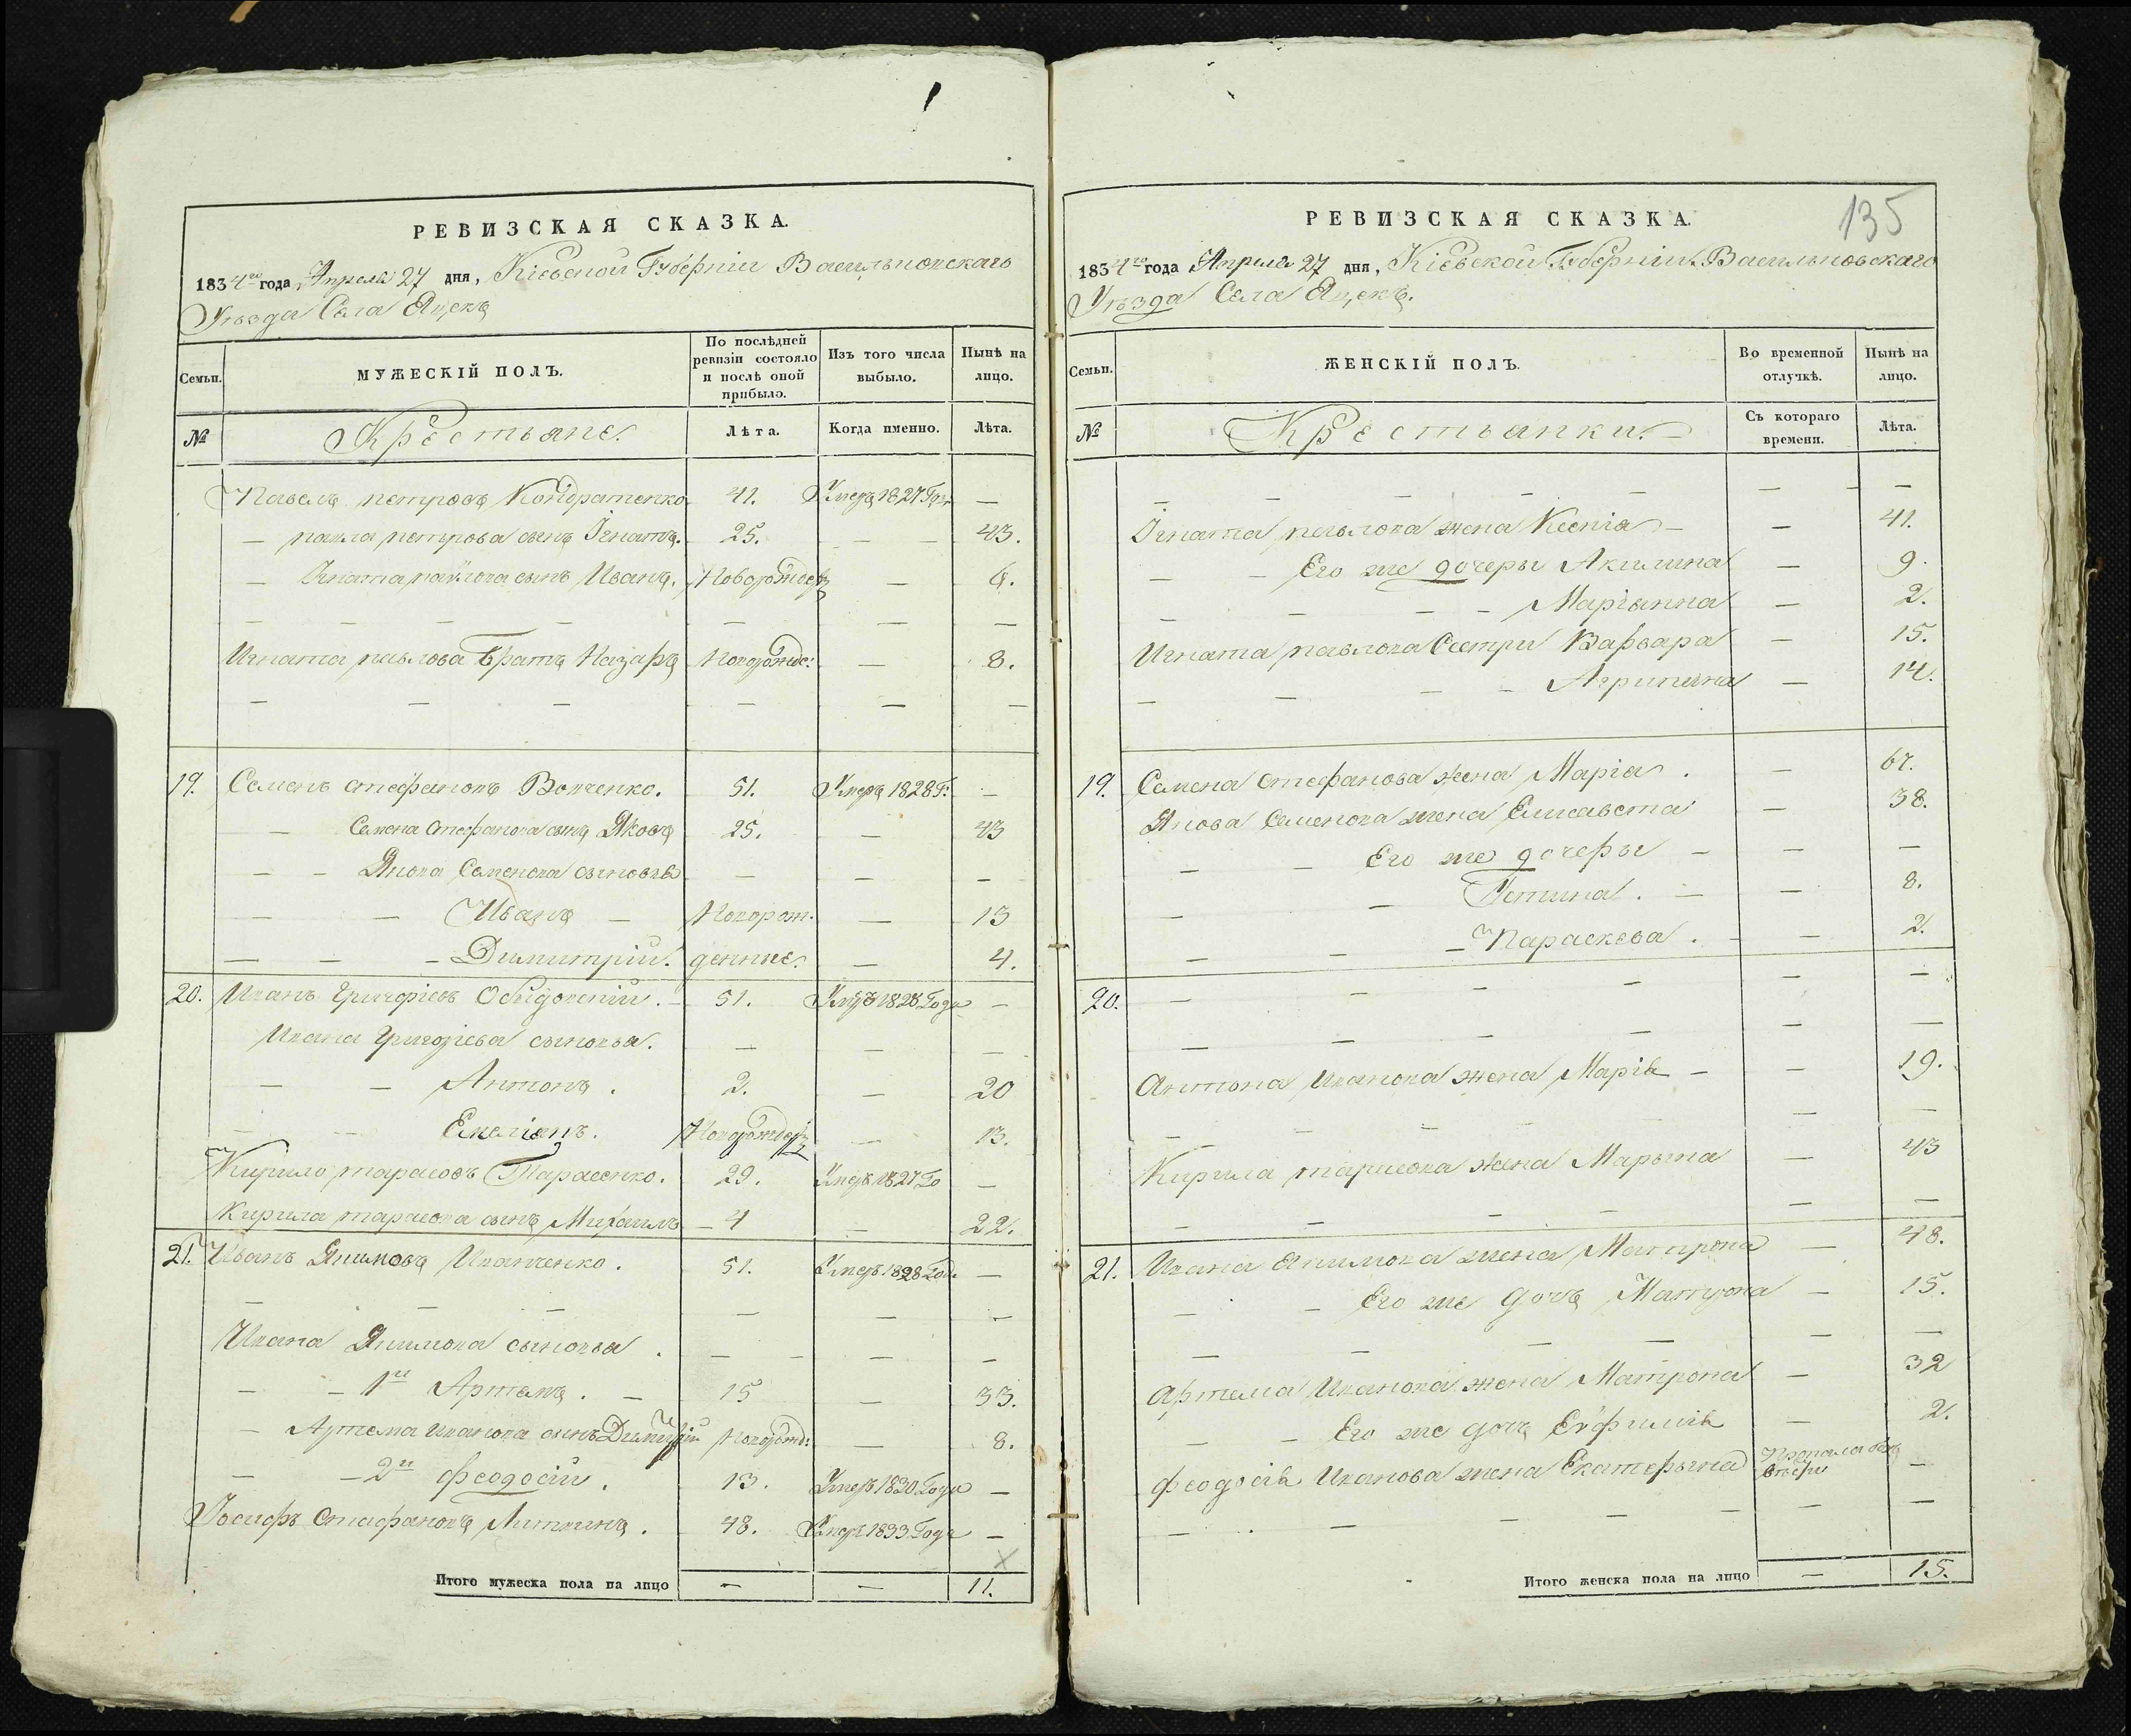 РЕВИЗСКАЯ СКАЗКА.
1834го года Апреля 27 дня, Кіевской Губерніи Васильковскаго
Уъзда Села Яцекъ
Семьи.
МУЖЕСКІЙ ПОЛЪ.
По послѣдней ревизіи состояло и послѣ оной прибыло.
Изъ того числа выбыло.
Нынѣ на лицо.
№
Крестьяне.
Лѣта.
Когда именно.
Лѣта.
Павелъ петровъ Кондратенко 41. Умеръ 1827 Года —
— павла петрова сынъ Ігнатъ. 25. — — — 43.
— Игната павлова сынъ Иванъ. Новорожде — 6.
— — — — — — —
Игната павлова Братъ Назаръ Новорожде: — 8.
— — — — — —
19. Семенъ стефановъ Вовченко. 51. Умеръ 1828 Г: —
— Семена Стефанова сынъ Яковъ 25. — 43
— — Якова Семенова сыновъя — — —
— — Иванъ — Новорож- — 13
— — — Димитрій. денные. — 4.
20. Иванъ Григоріевъ 51. Умеръ 1828 Года —
Ивана Григоріева сыновъя. — — —
— — Антонъ. 2. — 20
— — Емеліянъ. Новорожде — 13.
Кирило тарасовъ Тарасенко. 29. Умеръ 1827 Го —
Кирила тарасова сынъ Михаилъ — 4 — 22.
21. Иванъ Якимовъ Иванченко. 51. Умеръ 1828 Год. —
— — — — — —
Ивана Якимова сыновъя. — — — —
— — 1й Артемъ. — 15 — 33.
— Артема иванова сынъ Димитрій Новорожд: — 8.
— — 2й Феодосій. 13. Умеръ 1830 Года —
Іосифъ Стефановъ Литвинъ. 48. Умеръ 1833 Года —
Итого мужеска пола на лицо — — 11.
135
РЕВИЗСКАЯ СКАЗКА.
1834го года Апреля 27 дня, Кіевской Губерніи Васильковскаго
Уъзда Села Яцекъ.
Семьи.
ЖЕНСКІЙ ПОЛЪ.
Во временной отлучкѣ.
Нынѣ на лицо.
№
Крестьянки.
Съ котораго времени.
Лѣта.
— — — — — — — —
Ігната павлова жена Ксенія — — 41.
— — Его же дочеры Акилина — 9.
— — — — Маріанна — 2.
Игната павлова Сестри Варвара — 15.
— — — — Агрипина — 14.
19. Семена стефанова жена Марія. — 67.
Якова Семенова жена Елисавета — 38.
— — Его же дочеры — — —
— — Устина. — — 8.
— — — Параскева. — — 2.
20. — — — — — —
— — — — — —
Антона иванова жена Марія — — 19.
— — — — — —
Кирила тарасова жена Марына — 43
— — — — — —
21. Ивана Якимова жена Матрона — 48.
— — Его же дочъ Матрона — 15.
— — — — — —
Артема Иванова жена Матрона — 32
— — Его же дочъ Евфимія — 2.
Феодосія Иванова жена Екатерына Пропала безъ —
— — — — — —
Итого женска пола на лицо — 15.